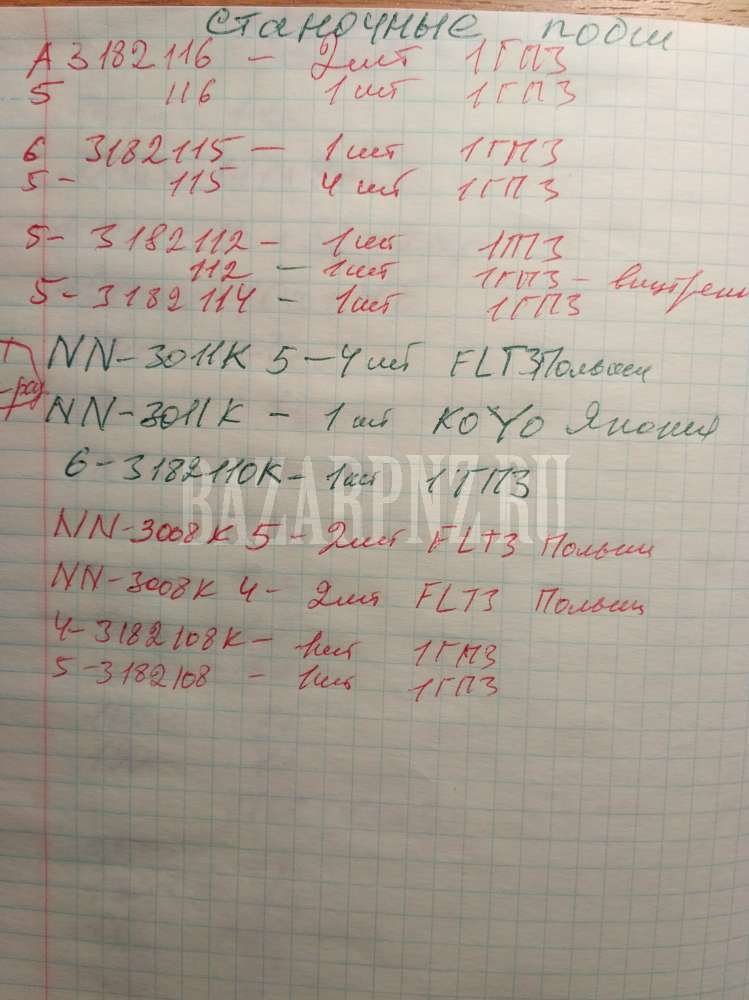 станочные подш
А 3182116 – 2шт 1ГПЗ
5 116 1шт 1ГПЗ
6 3182115 – 1шт 1ГПЗ
5- 115 4шт 1ГПЗ
5- 3182112 – 1шт 1ГПЗ
112 – 1шт 1ГПЗ –
5-3182114 – 1шт 1ГПЗ
NN-3011К 5 – 4шт FLT Польша
NN-3011К – 1шт KOYO Япония
6-3182110К – 1шт 1ГПЗ
BAZARPNZ.RU
NN-3008К 5 – 2шт FLT3 Польша
NN-3008К 4 – 2шт FLT3 Польша
4-3182108К – 1шт 1ГПЗ
5-3182108 – 1шт 1ГПЗ